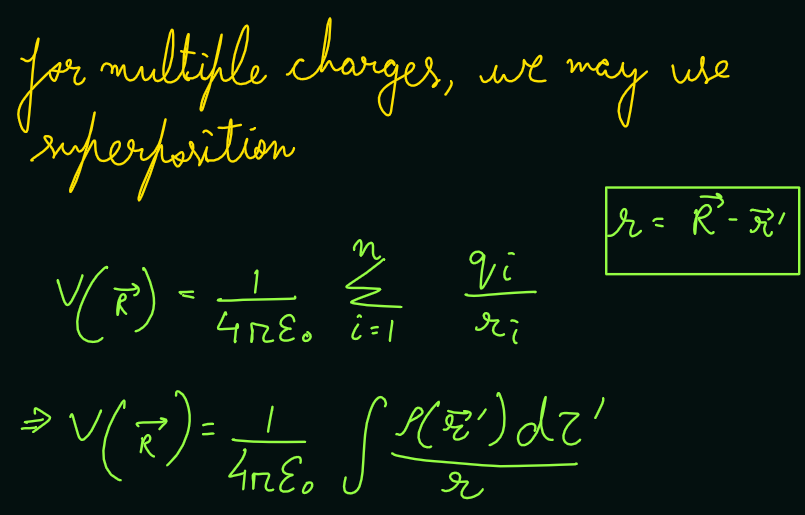 for multiple charges, we may use
superposition
r = R⃗ - r⃗'
V(R⃗) = 1/4πε₀ ∑ᵢ₌₁ⁿ qᵢ/rᵢ
⇒ V(R⃗) = 1/4πε₀ ∫ ρ(r⃗')dτ'/r